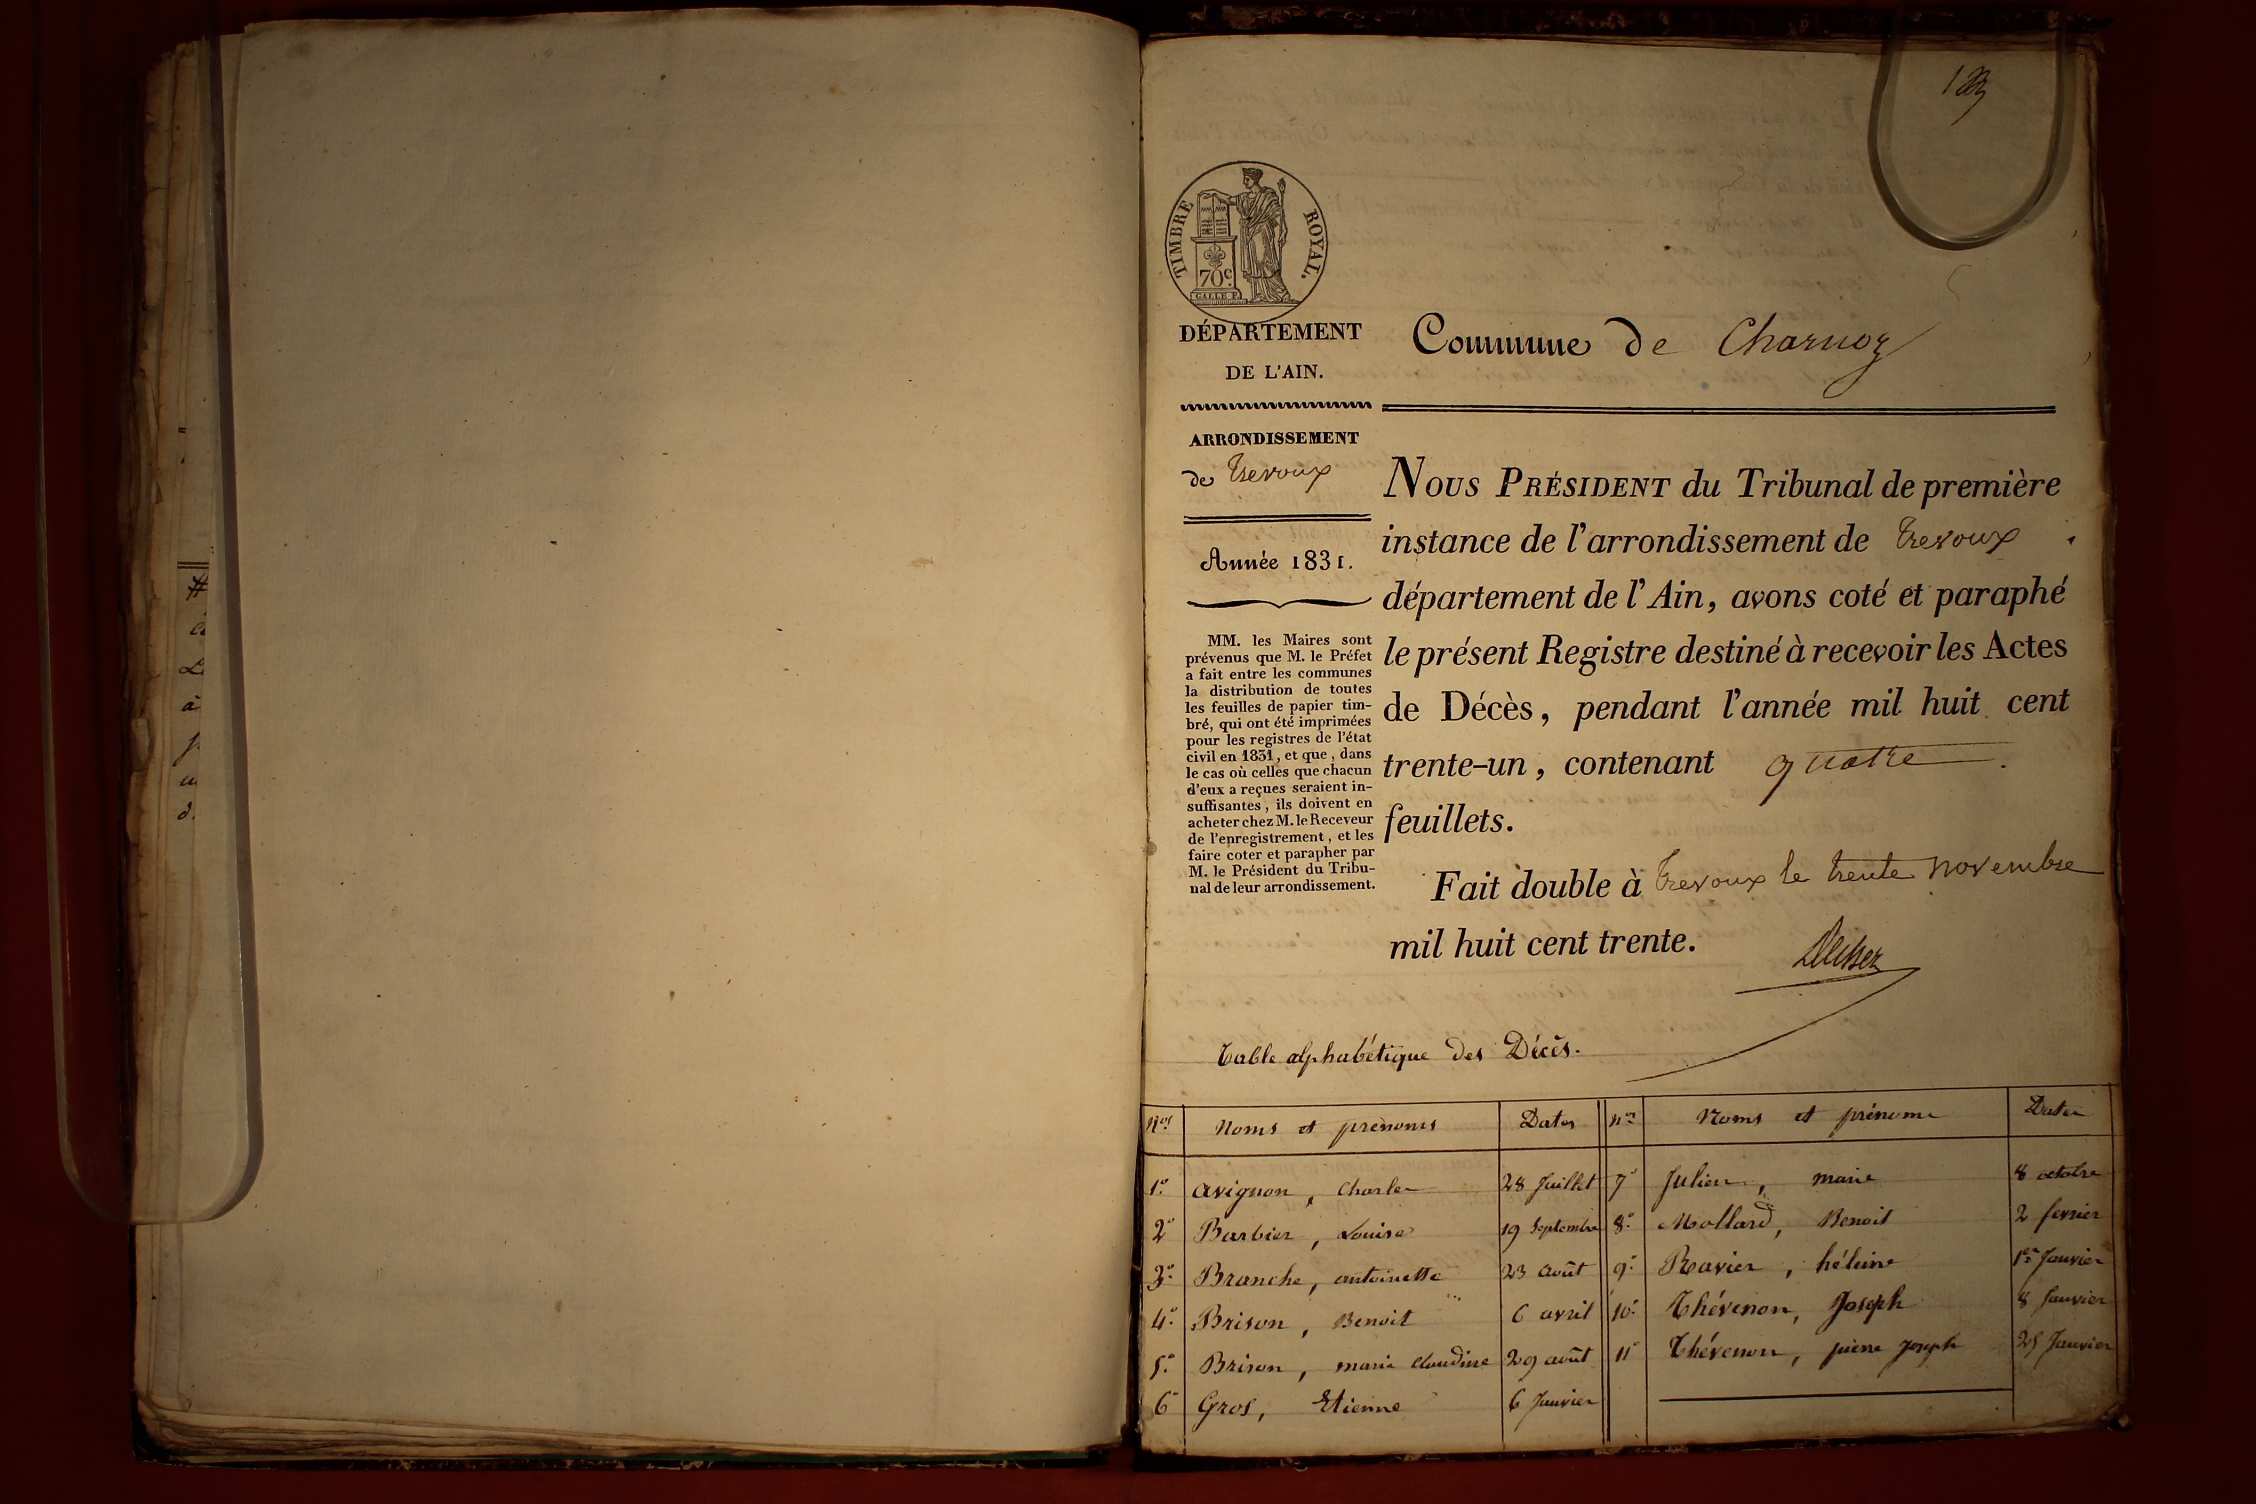 TIMBRE ROYAL.
70c.
GALLE F.
DÉPARTEMENT
DE L'AIN.
Commune de Charnoz
ARRONDISSEMENT
de Trevoux
Année 1831.
MM. les Maires sont
prévenus que M. le Préfet
a fait entre les communes
la distribution de toutes
les feuilles de papier tim-
bré, qui ont été imprimées
pour les registres de l'état
civil en 1831, et que, dans
le cas où celles que chacun
d'eux a reçues seraient in-
suffisantes, ils doivent en
acheter chez M. le Receveur
de l'enregistrement, et les
faire coter et parapher par
M. le Président du Tribu-
nal de leur arrondissement.
NOUS PRÉSIDENT du Tribunal de première
instance de l'arrondissement de Trevoux
département de l'Ain, avons coté et paraphé
le présent Registre destiné à recevoir les Actes
de Décès, pendant l'année mil huit cent
trente-un, contenant quatre
feuillets.
Fait double à Trevoux le trente novembre
mil huit cent trente.
Table alphabétique des Décès.
Nos Noms et prénoms Dates nos Noms et prénoms Dates
1º. avignon, Charles 28 Juillet 7º Julien, marie 8 octobre
2º Barbier, Louise 19 Septembre 8º. Mollard, Benoit 2 fevrier
3º. Branche, antoinette 23 août 9º. Ravier, hélène 1er Janvier
4º. Brison, Benoit 6 avril 10º. Thévenon, Joseph 8 Janvier
5º. Brison, marie claudine 29 août 11º Thévenon, pierre Joseph 25 Janvier
6º Gros, Etienne 6 Janvier